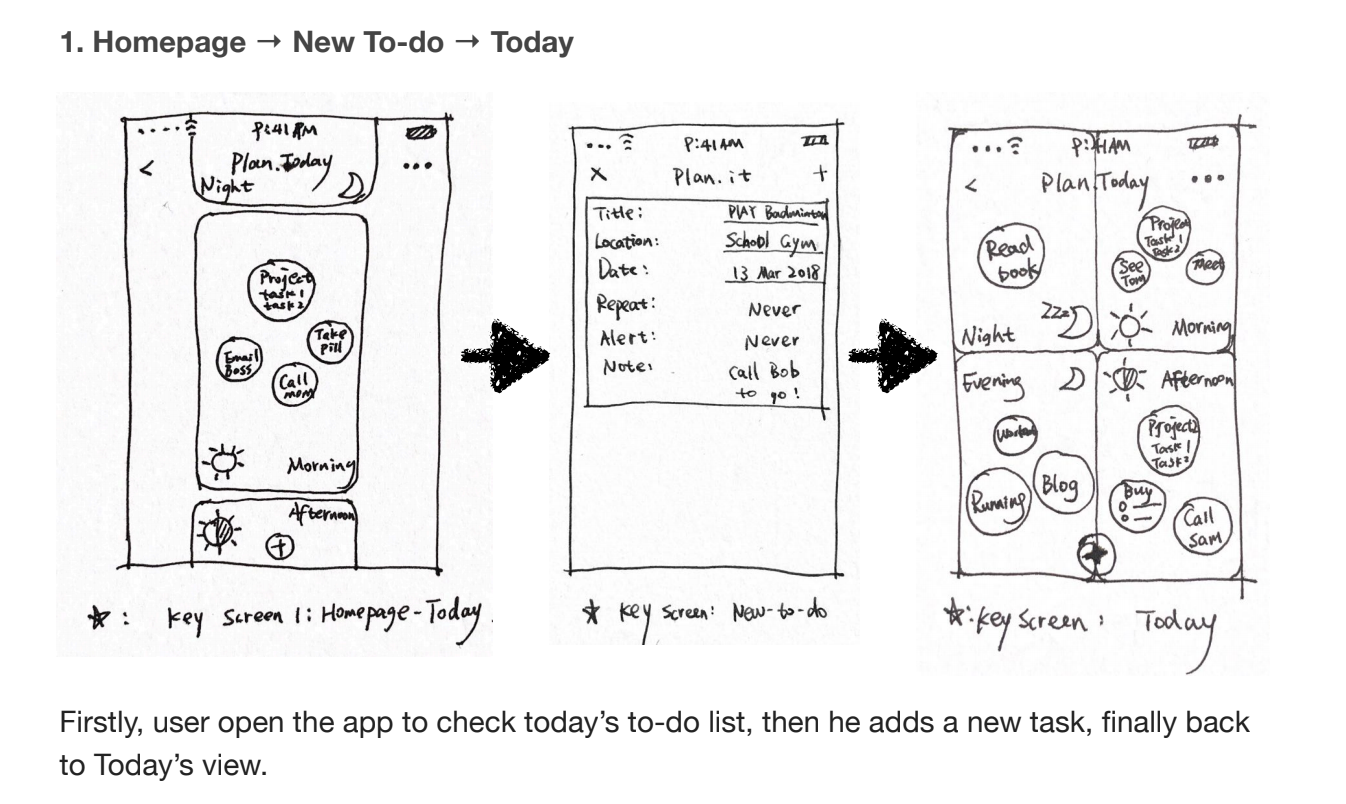 1. Homepage → New To-do → Today
9:41 AM
Plan.Today
Night
Project
task 1
task 2
Take
Pill
Email
Boss
Call
mom
Morning
Afternoon
☆: key Screen 1: Homepage-Today
9:41 AM
Plan.it
Title: PlAY Badminton
Location: School Gym
Date: 13 Mar 2018
Repeat: Never
Alert: Never
Note: Call Bob
to go!
☆ key screen: New-to-do
9:41AM
Plan.Today
Read
book
Zzz
Night
Project
Task 1
Task 2
See
Tom
Meet
Morning
Evening
Workout
Running
Blog
Afternoon
Project2
Task 1
Task 2
Buy
Call
Sam
☆: key screen: Today
Firstly, user open the app to check today’s to-do list, then he adds a new task, finally back
to Today’s view.